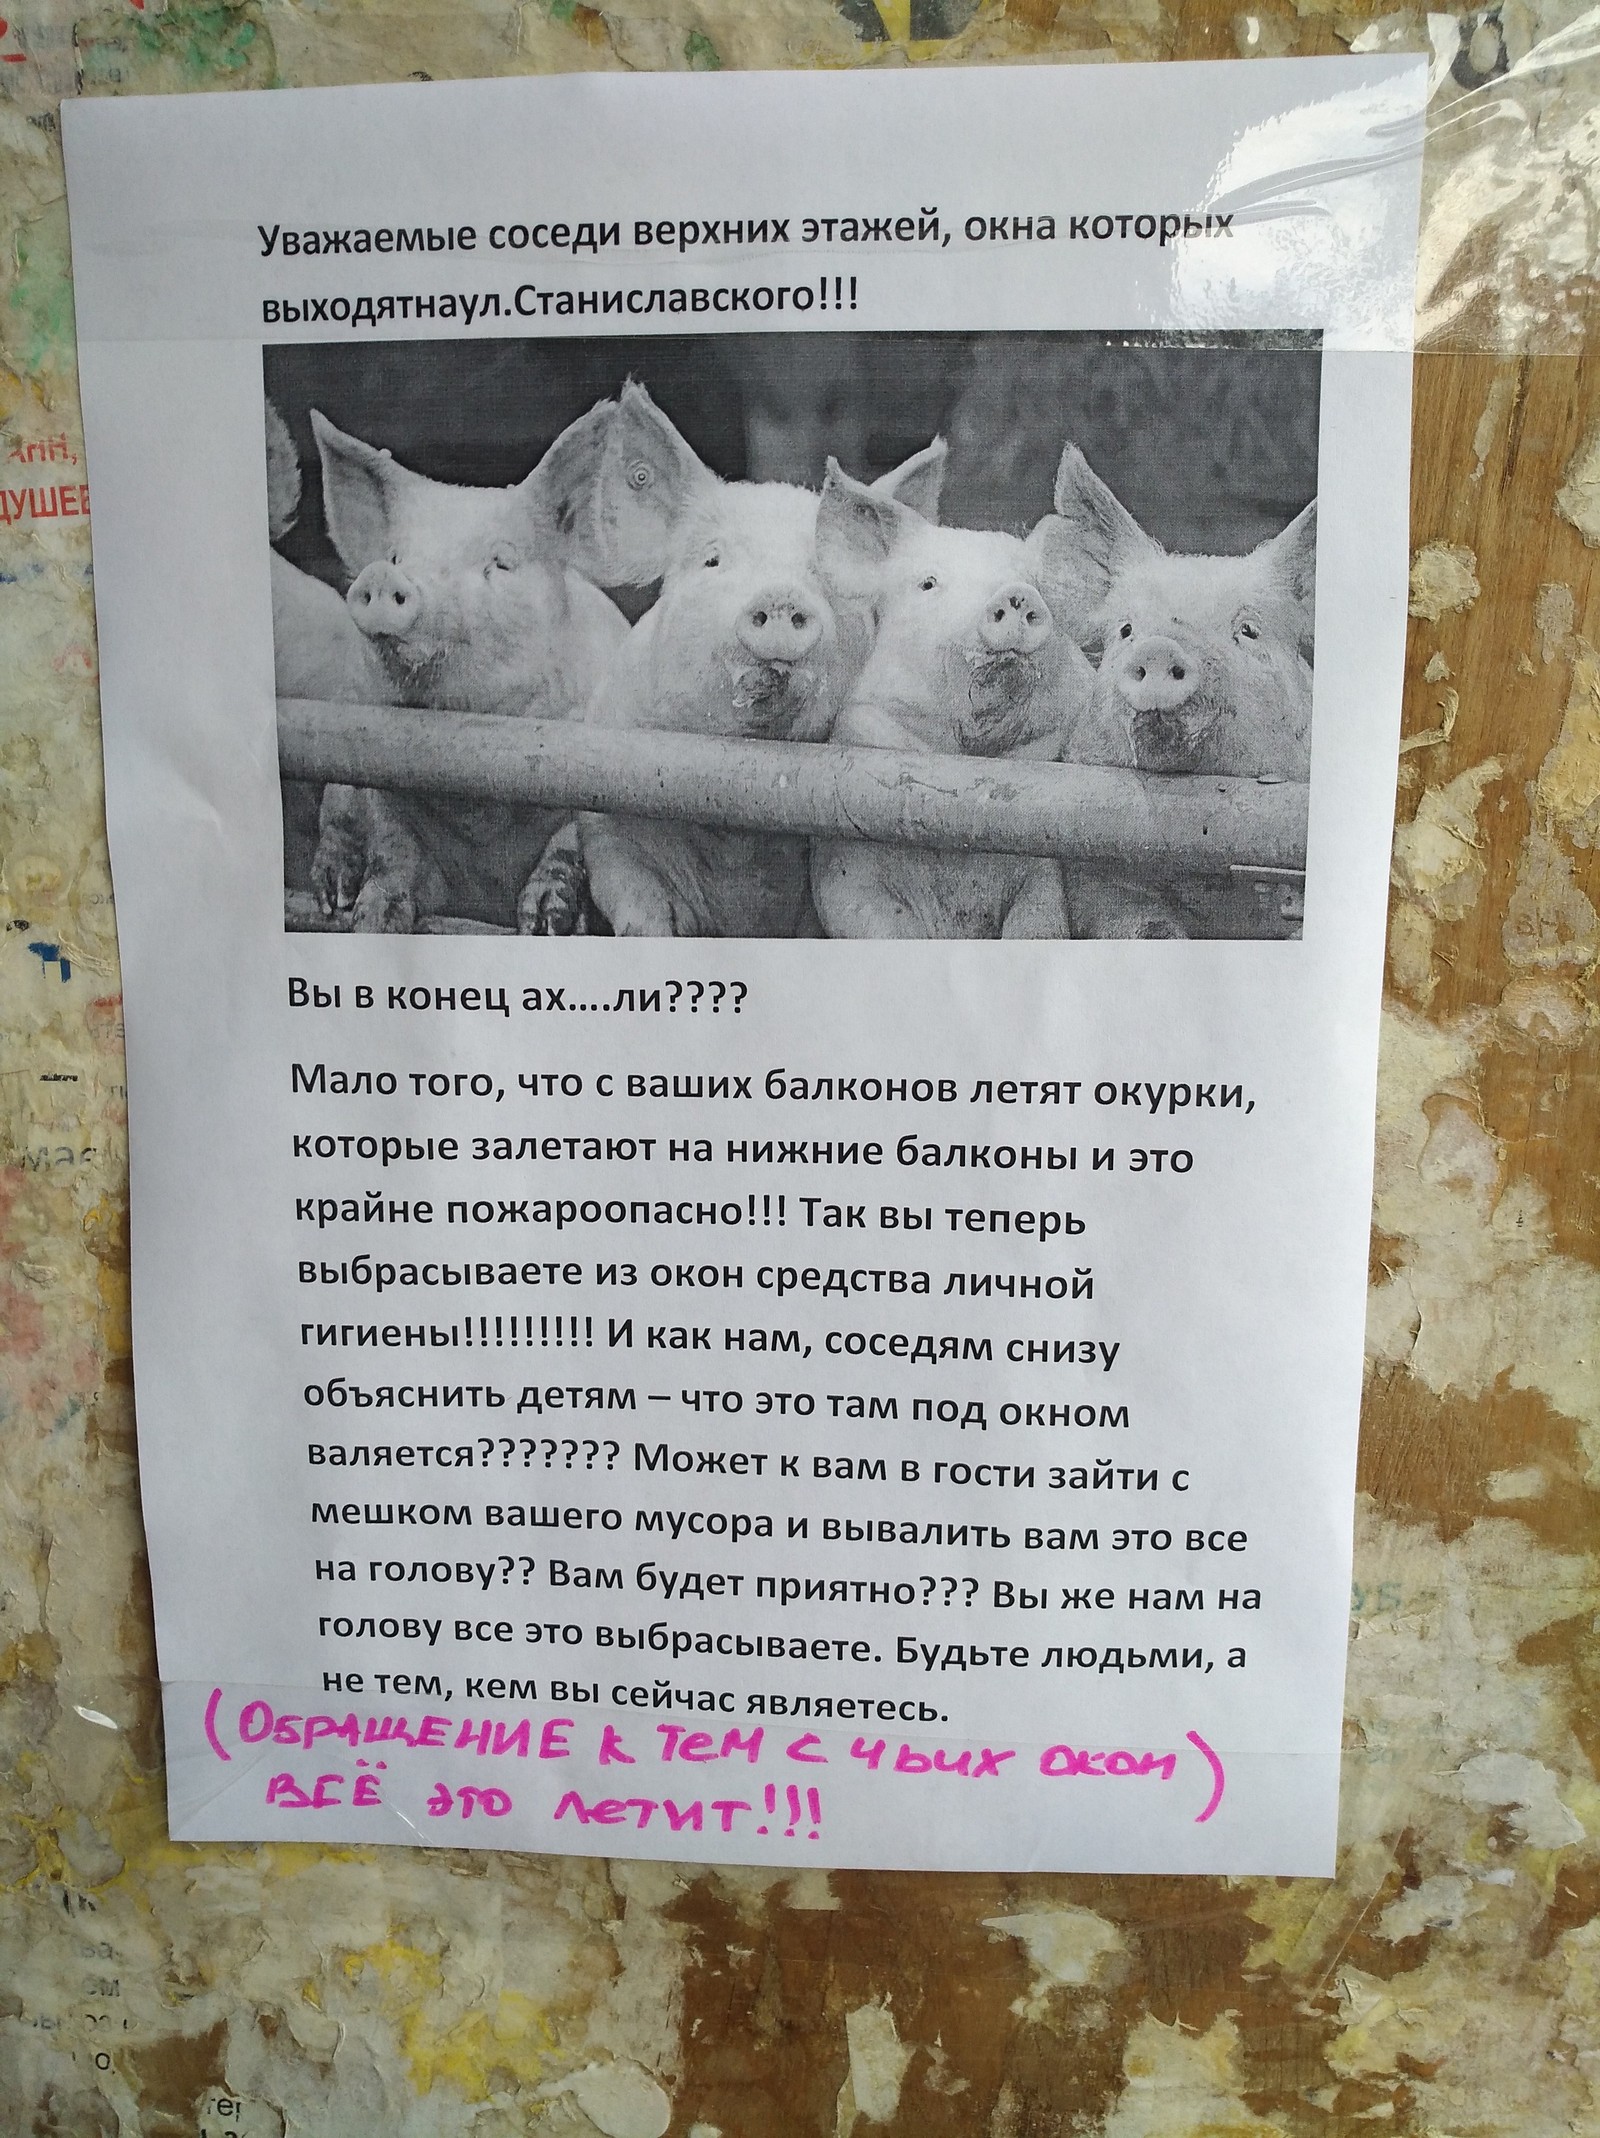 Уважаемые соседи верхних этажей, окна которых
выходятнаул.Станиславского!!!
Вы в конец ах....ли????
Мало того, что с ваших балконов летят окурки,
которые залетают на нижние балконы и это
крайне пожароопасно!!! Так вы теперь
выбрасываете из окон средства личной
гигиены!!!!!!!!! И как нам, соседям снизу
объяснить детям – что это там под окном
валяется??????? Может к вам в гости зайти с
мешком вашего мусора и вывалить вам это все
на голову?? Вам будет приятно??? Вы же нам на
голову все это выбрасываете. Будьте людьми, а
не тем, кем вы сейчас являетесь.
(ОБРАЩЕНИЕ К ТЕМ С ЧЬИХ ОКОН)
ВСЁ ЭТО ЛЕТИТ!!!